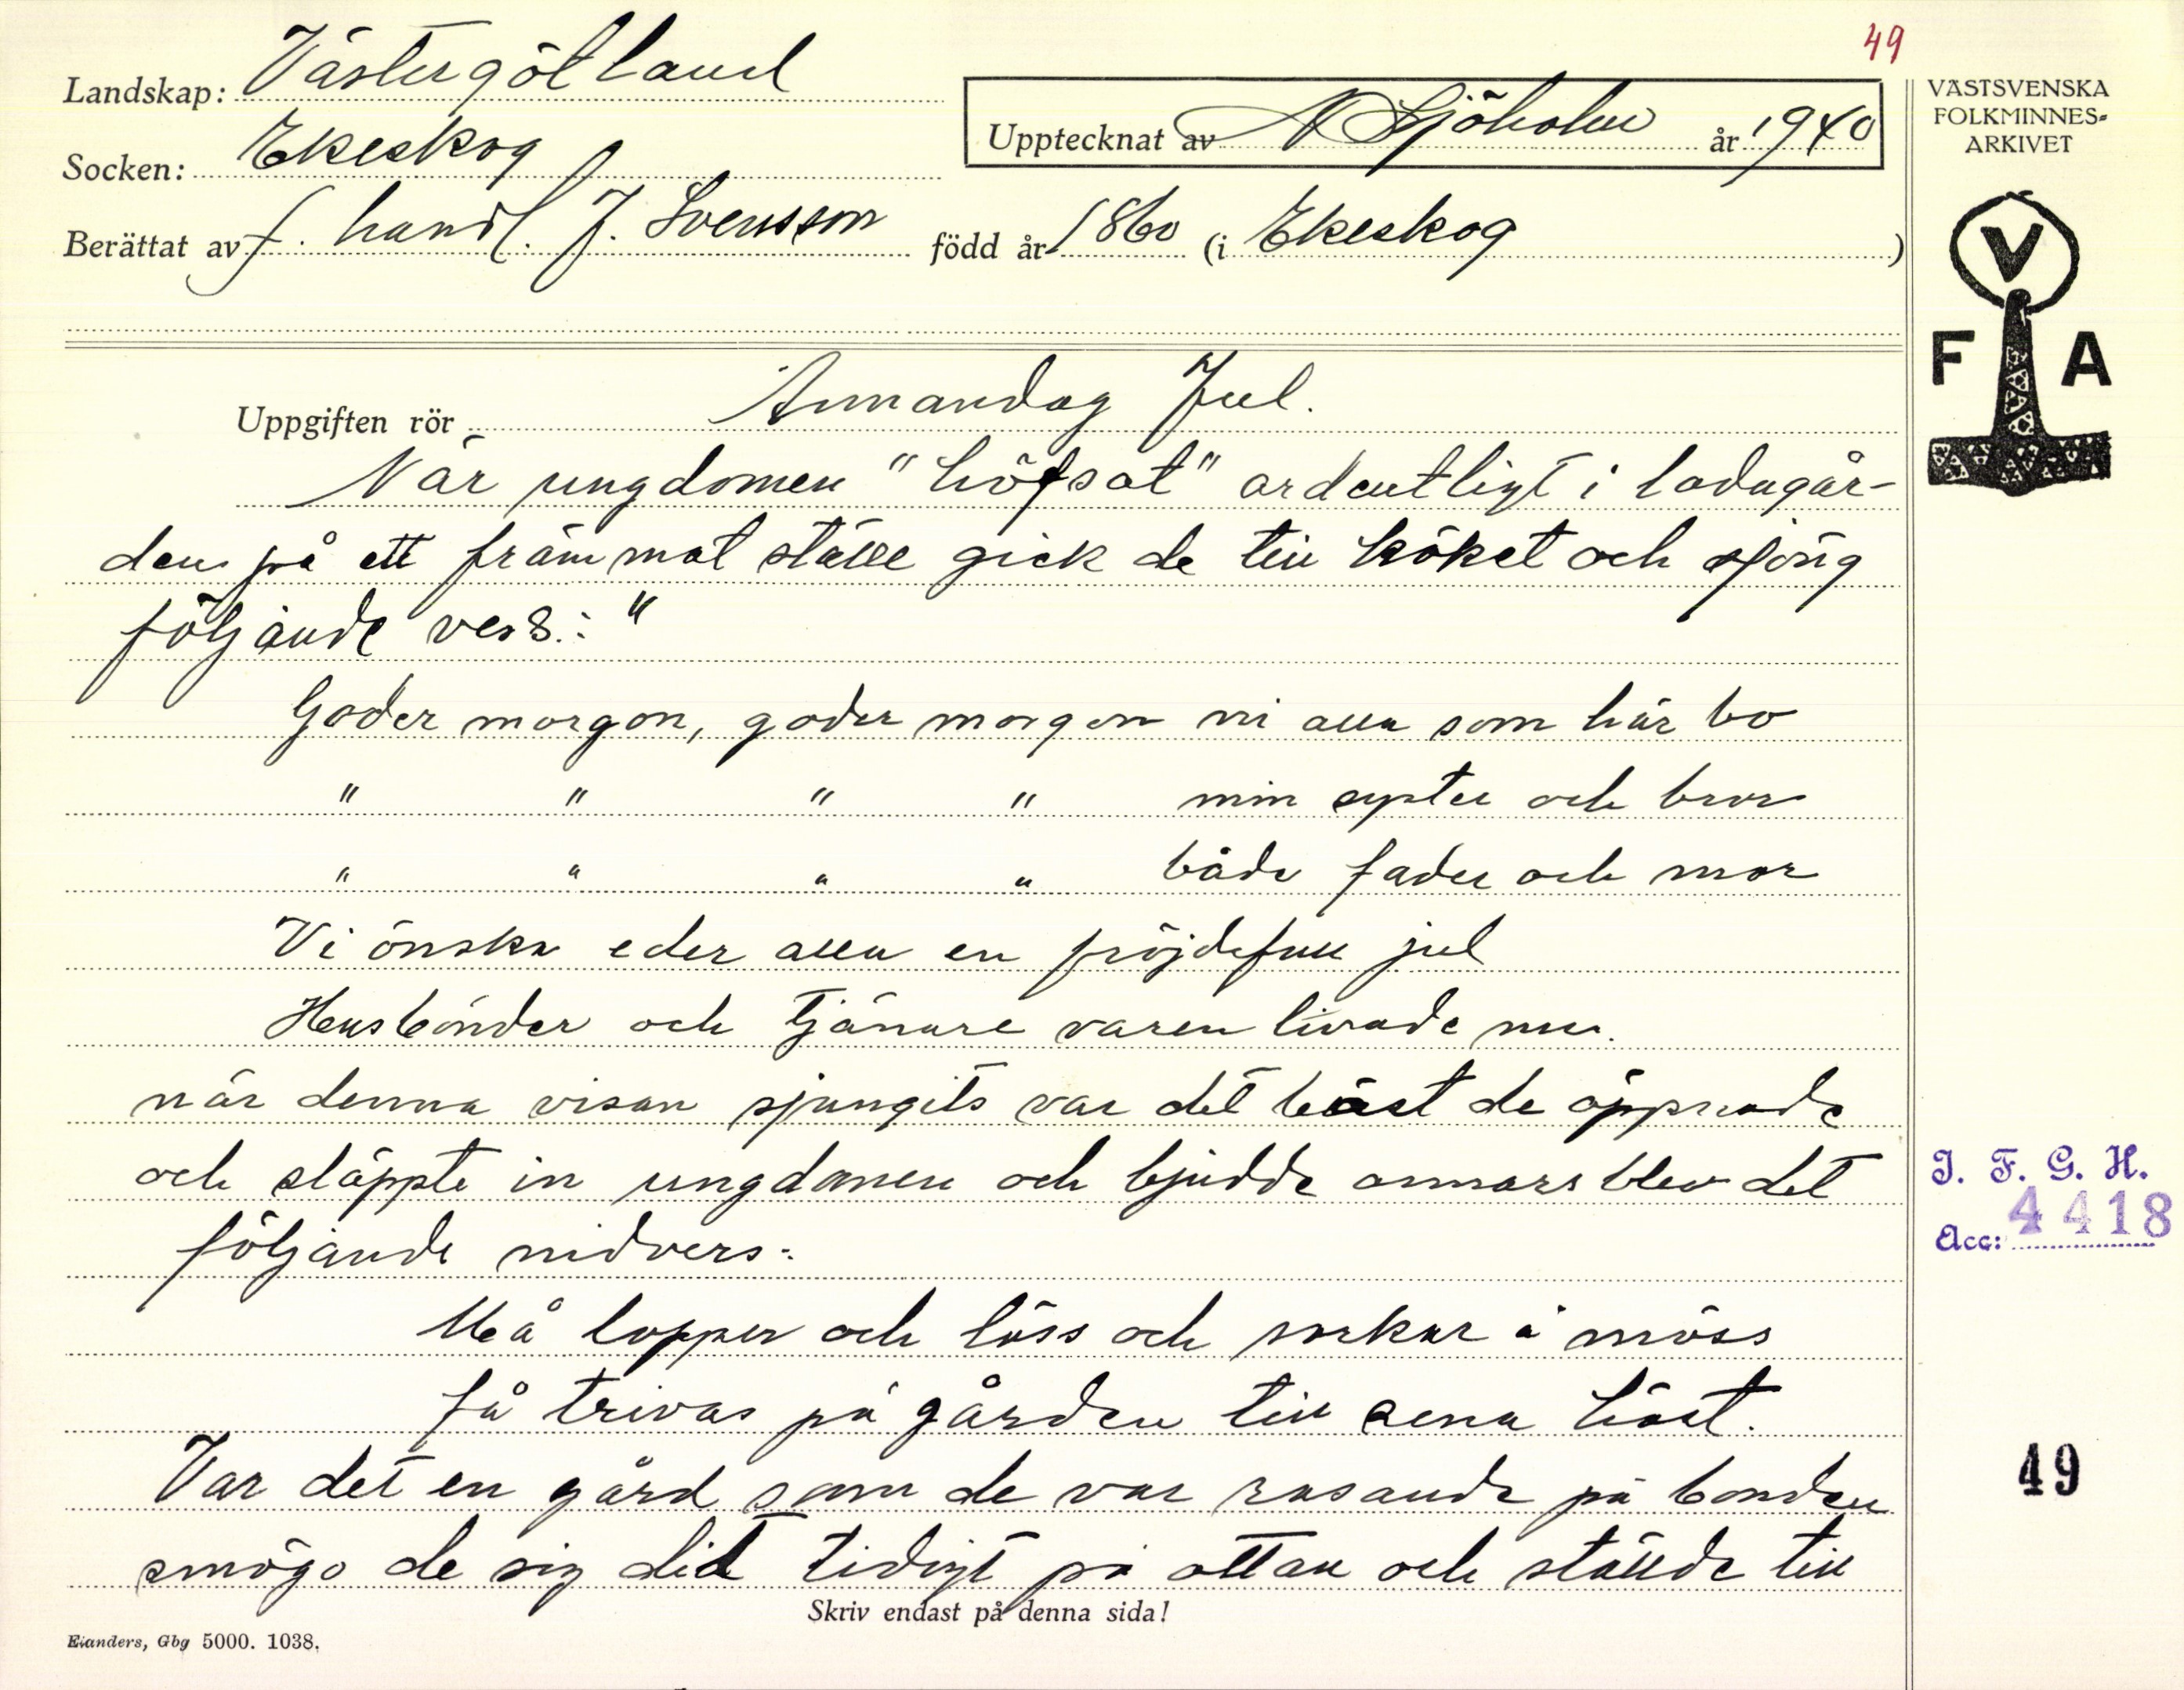 49
Landskap: Västergötland
Socken: Ekeskog
Upptecknat av N Sjöholm år 1940
Berättat av f. handl. J. Svensson född år 1860 (i Ekeskog )
VÄSTSVENSKA
FOLKMINNES-
ARKIVET
V
F A
Uppgiften rör Annandag Jul.
När ungdomen "höfsat" ordentligt i ladugår-
den på ett främmat ställe gick de till köket och sjöng
följande vers.: "
Goder morgon, goder morgon ni alla som här bo
" " " " min syster och bror
" " " " både fader och mor
Vi önska eder alla en fröjdefull jul
Husbönder och tjänare varen livade nu.
när denna visan sjungits var det bäst de öppnade
och släppte in ungdomen och bjudde annars blev det
följande nidvers:
Må loppor och löss och sorkar å möss
få trivas på gården till sena höst.
Var det en gård som de var rasande på bonden
smögo de sig did tidigt på ottan och ställde till
Skriv endast på denna sida!
Elanders, Gbg 5000. 1038.
I. F. G. H.
Acc: 4418
49